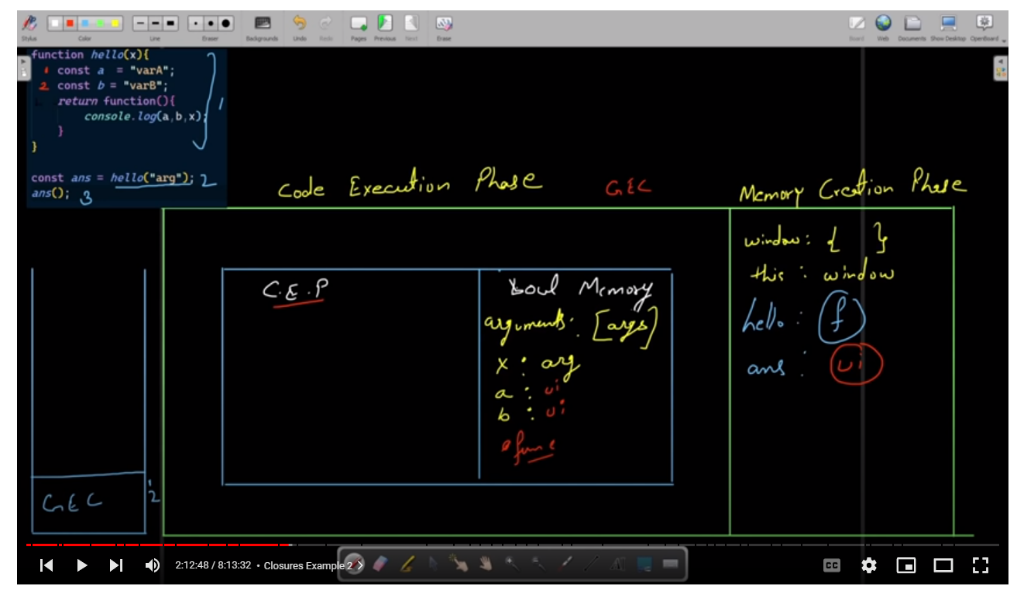 Stylus Color Line Eraser Backgrounds Undo Redo Pages Previous Next Erase Board Web Documents Show Desktop OpenBoard
function hello(x){
1 const a = "varA";
2 const b = "varB";
return function(){
console.log(a,b,x);
}
}
1
const ans = hello("arg"); 2
ans(); 3
Code Execution Phase GEC Memory Creation Phase
window: { }
this : window
hello : f
ans : ui
C.E.P
Memory
arguments: [args]
x : arg
a : ui
b : ui
func
GEC
1
2
2:12:48 / 8:13:32 • Closures Example 2
CC